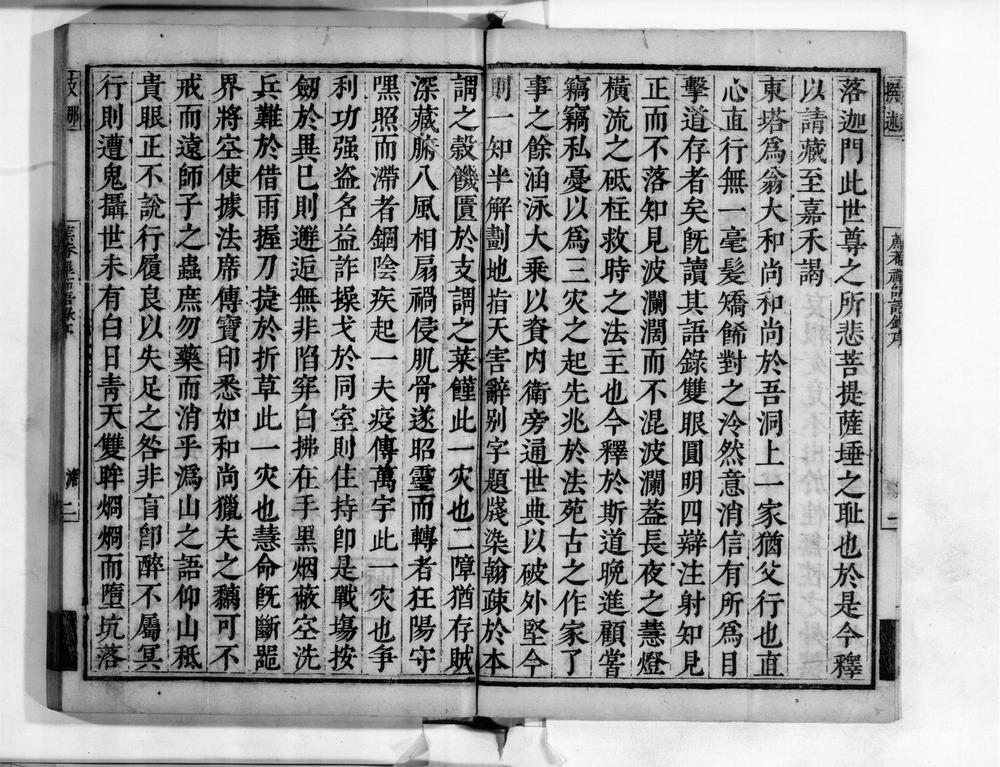 落迦門此世尊之所悲菩提薩埵之耻也於是今釋
以請藏至嘉禾謁
東塔爲翁大和尚和尚於吾洞上一家猶父行也直
心直行無一毫髮矯餙對之泠然意消信有所爲目
擊道存者矣旣讀其語錄雙眼圓明四辯注射知見
正而不落知見波瀾濶而不混波瀾葢長夜之慧燈
橫流之砥柱救時之法王也今釋於斯道晩進顧嘗
竊竊私憂以爲三灾之起先兆於法苑古之作家了
事之餘涵泳大乘以資内衛旁通世典以破外堅今
則一知半解劃地指天害辭别字題牋染翰疎於本
謂之穀饑匱於支謂之菜饉此一灾也二障猶存賊
深藏腑八風相扇禍侵肌骨遂昭靈而轉者狂陽守
嘿照而滯者錮陰疾起一夫疫傳萬宇此一灾也爭
利功强盗名益詐操戈於同室則住持卽是戰塲按
劒於異巳則邂逅無非陷穽白拂在手黑烟蔽空洗
兵難於借雨握刀㨗於折草此一灾也慧命旣斷噐
界將空使據法席傳寶印悉如和尚獵夫之黐可不
戒而遠師子之蟲庶勿藥而消乎溈山之語仰山秪
貴眼正不說行履良以失足之咎非盲卽醉不屬冥
行則遭鬼攝世未有白日靑天雙眸烱烱而墮坑落
二